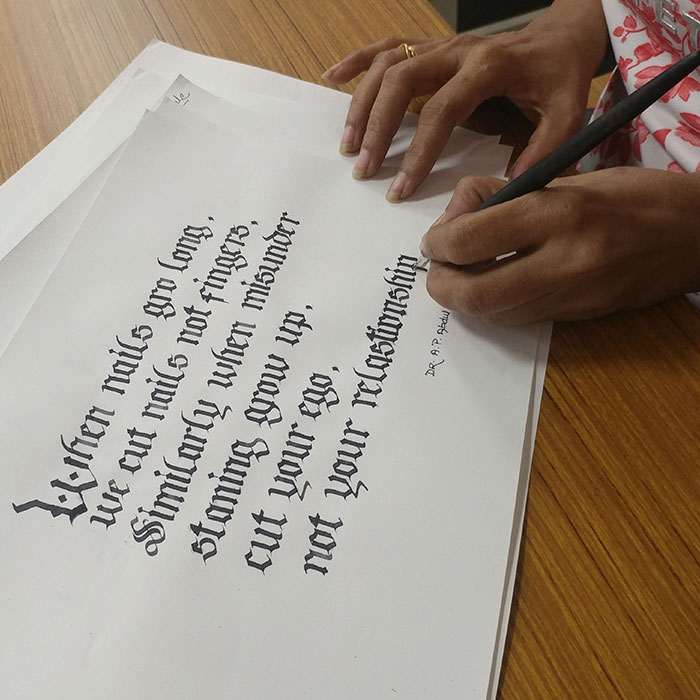 When nails gro long,
we cut nails not fingers.
Similarly when misunder
staning grow up,
cut your ego,
not your relastionship
DR. A.P. Abdul